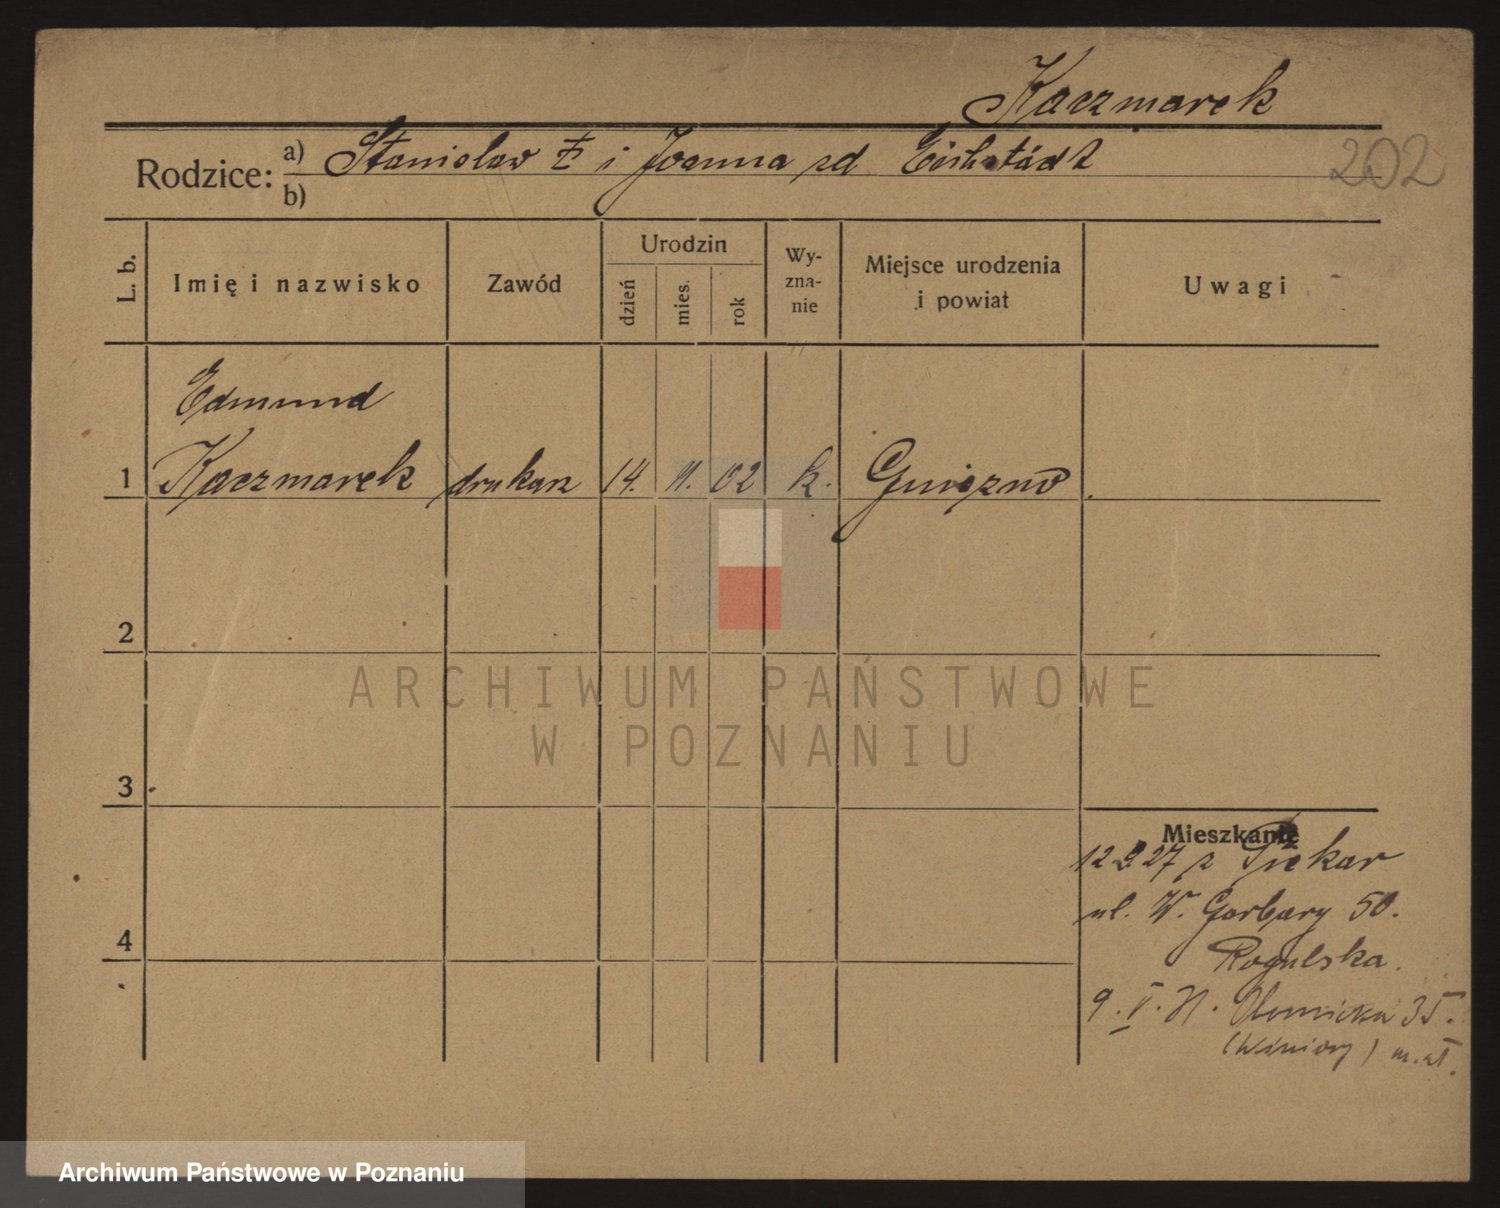 Kaczmarek
202
Rodzice: a) Stanisław i Joanna zd Eichstädt
b)
L. b. Imię i nazwisko Zawód Urodzin dzień mies. rok Wyznanie Miejsce urodzenia i powiat Uwagi
Edmund
1 Kaczmarek drukarz 14. 11. 02 k. Gniezno
2
3
4
Mieszkanie
12 27 z Piekar
ul. W. Garbary 50.
Rogulska.
9. V. 35.
ARCHIWUM PAŃSTWOWE
W POZNANIU
Archiwum Państwowe w Poznaniu